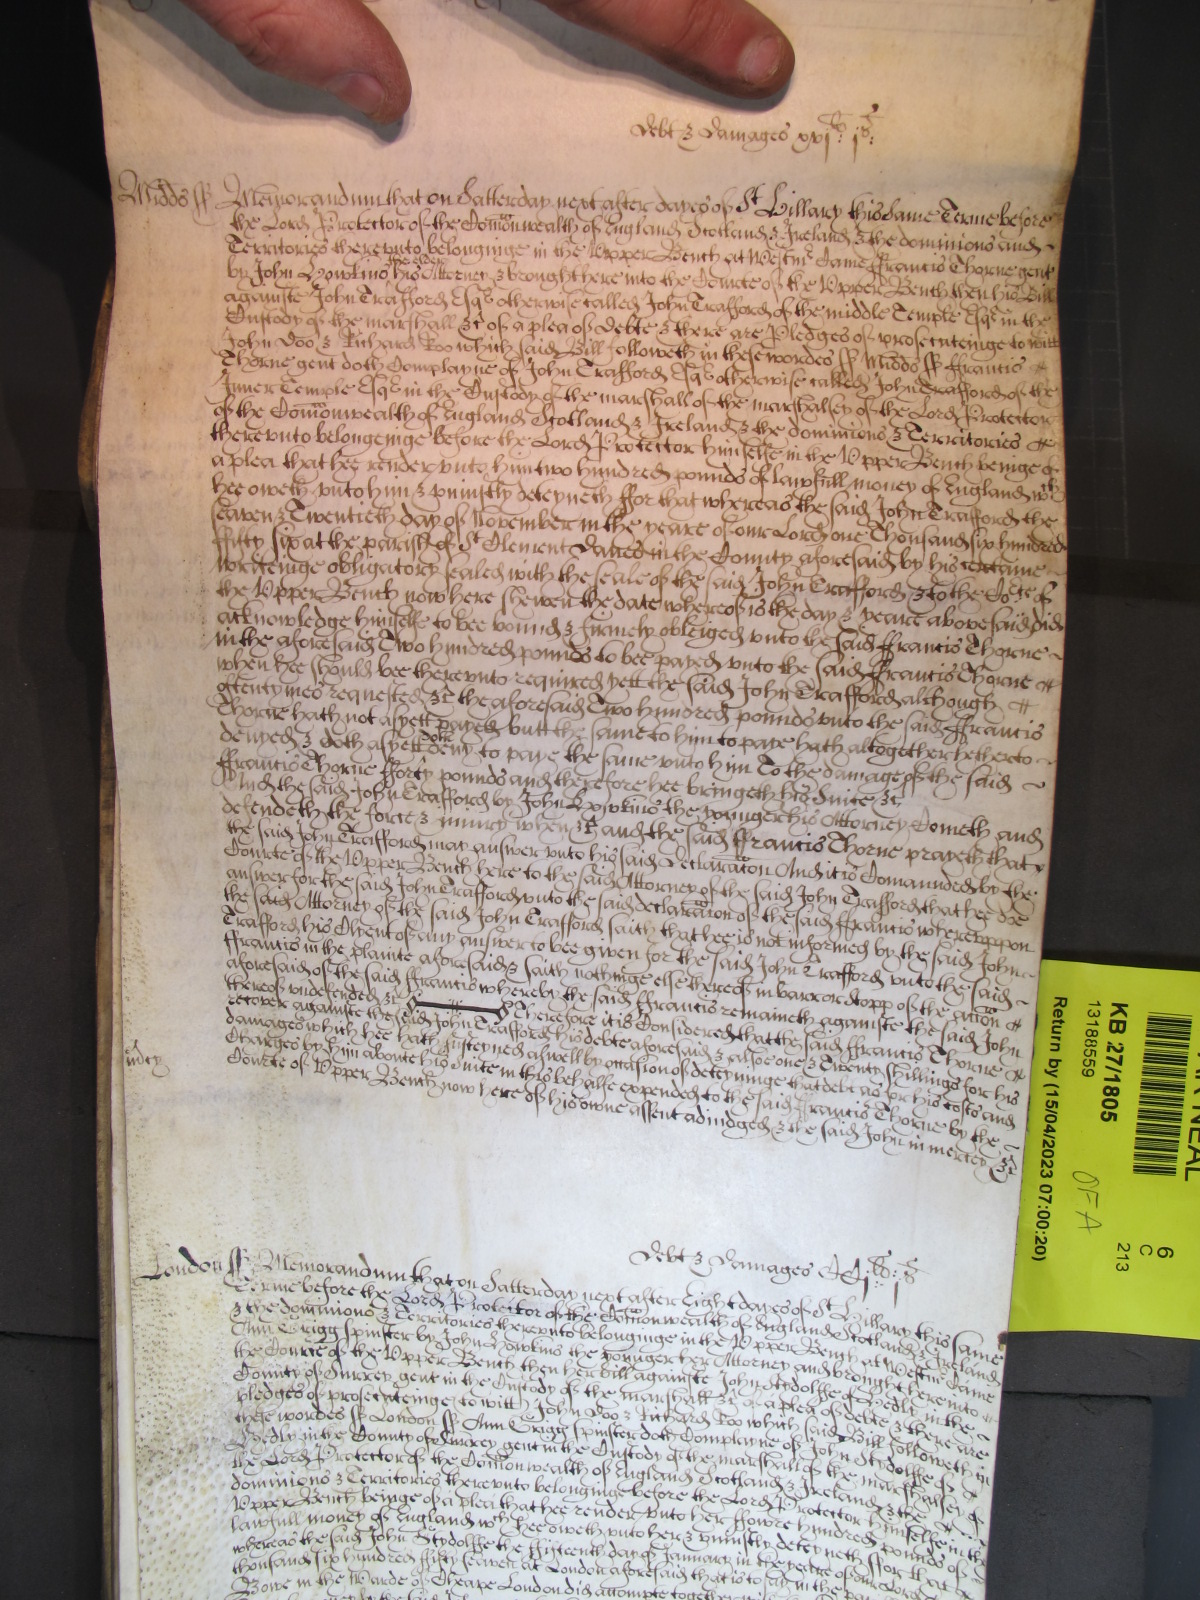 Debt & Damages
Midds ss Memorandum that on Satterday next after dayes of St Hillary this same Terme before
the Lord Protector of the Comonwealth of England Scotland & Ireland & the dominions and
Territories therevnto belonginge in the Vpper Bench at Westmr Came ffrancis Thorne gent
by John Howkins the elder his Attorney & brought here into the Courte of the Vpper Bench then his Bill
againste John Trafford Esqr otherwise called John Trafford of the middle Temple Esqr in the
Custody of the marshall &c of a plea of Debte & there are Pledges of prosecuteinge to witt
John Doo & Richard Roo which said Bill followeth in these wordes ss Midds ss ffrancis
Thorne gent doth Complayne of John Trafford Esqr otherwise called John Trafford of the
Inner Temple Esqr in the Custody of the marshall of the marshalsey of the Lord Protector
of the Comonwealth of England Scotland & Ireland & the dominions & Territories
therevnto belongeinge before the Lord Protector himselfe in the Vpper Bench beinge of
a plea that hee render vnto him two hundred pounds of lawfull money of England wch
hee oweth vnto him & vniustly deteyneth ffor that whereas the said John Trafford the
seaven & Twentieth day of November in the yeare of our Lord one Thousand six hundred
ffifty six at the parish of St Clement Danes in the County aforesaid by his certaine
writeinge obligatory sealed with the seale of the said John Trafford & to the Corte of
the Vpper Bench now here shewen the date whereof is the day & yeare abovesaid did
acknowledge himselfe to bee bound & firmely obleiged vnto the said ffrancis Thorne
in the aforesaid Two hundred pounds to bee payed vnto the said ffrancis Thorne
when hee should bee therevnto required yett the said John Trafford although
oftentymes requested &c the aforesaid Two hundred pounds vnto the said ffrancis
Thorne hath not as yett payed butt the same to him to paye hath altogether hetherto
denyed & doth as yett deny to paye the same vnto him To the damage of the said
ffrancis Thorne fforty pounds and therefore hee bringeth his Suite &c
And the said John Trafford by John Howkins the younger his Attorney Cometh and
defendeth the force & iniury when &c and the said ffrancis Thorne prayeth that
the said John Trafford may answer vnto his said Declaration And it is Comaunded by the
Courte of the Vpper Bench here to the said Attorney of the said John Trafford that hee doe
answer for the said John Trafford vnto the said declaration of the said ffrancis wherevppon
the said Attorney of the said John Trafford saith that hee is not informed by the said John
Trafford his Client of any answer to bee given for the said John Trafford vnto the said
ffrancis in the plainte aforesaid & saith nothinge else thereof in barr or stopp of the action
aforesaid of the said ffrancis whereby the said ffrancis remaineth againste the said John
thereof vndefended &c Therefore it is Considered that the said ffrancis Thorne
recover againste the said John Trafford his debte aforesaid & alsoe one & Twenty shillings for his
damages which hee hath susteyned aswell by occasion of deteyninge that debt as for his costs and
Charges by him aboute his Suite in this behalfe expended to the said ffrancis Thorne by the
Courte of Vpper Bench now here of his owne assent adiudged & the said John in mercy &c
Debt & Damages
London ss Memorandum that on Satterday next after Eight dayes of St Hillary this same
Terme before the Lord Protector of the Comonwealth of England Scotland & Ireland
& the dominions & Territories therevnto belonginge in the Vpper Bench at Westmr Came
Ann Grigg Spinster by John Howkins the younger her Attorney and brought here into
the Courte of the Vpper Bench then her bill againste John Stydolfe of in the
County of Surrey gent in the Custody of the marshall &c of a plea of debte & there are
pledges of prosecuteinge to witt John Doo & Richard Roo which said Bill followeth in
these wordes ss London ss Ann Grigg Spinster doth Complayne of John Stydolfe of
in the County of Surrey gent in the Custody of the marshall of the marshalsey of
the Lord Protector of the Comonwealth of England Scotland & Ireland & the
dominions & Territories therevnto belonginge before the Lord Protector himselfe in the
Vpper Bench beinge of a plea that hee render vnto her ffowre hundred pounds of
lawfull money of England wch hee oweth vnto her & vniustly deteyneth ffor that
whereas the said John Stydolfe the fifteenth day of January in the yeare of our Lord
thousand six hundred ffifty seaven at London aforesaid that is to say in the
Bowe in the Warde of Cheape London did
KB 27/1805
13188559
Return by (15/04/2023 07:00:20)
OFA
6
C
213